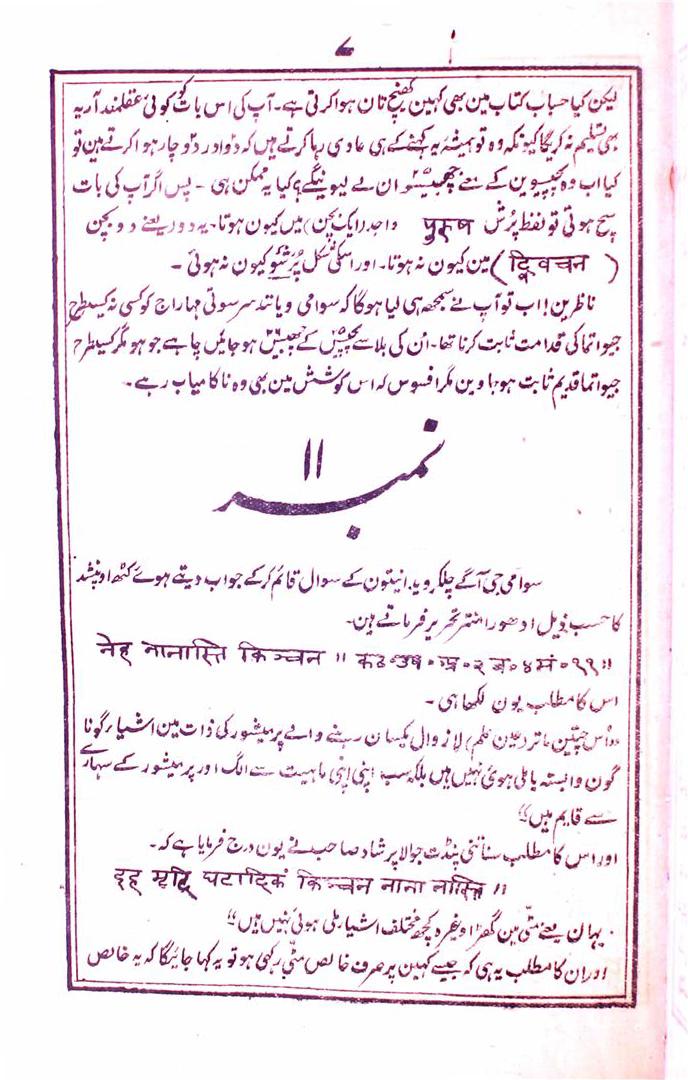 ۷
لیکن کیا حساب کتاب مین بھی کہین کھینچ تان ہوا کرتی ہے۔ آپ کی اس بات کو کوئی عقلمند آریہ
بھی تسلیم نہ کریگا کیونکہ وہ تو ہمیشہ یہ کہنے کے ہی عادی رہا کرتے ہیں کہ دو اور دو چار ہوا کرتے ہین تو
کیا اب وہ پچیسوین کے معنے چھبیسو ان لے لیوینگے؟ کیا یہ ممکن ہی ۔ پس اگر آپ کی بات
سچ ہوتی تو لفظ پُرش पुरुष واحد (ایک بچن) میں کیون ہوتا۔ یہ دو ریعنے دو بچن
(द्विवचन) مین کیون نہ ہوتا۔ اور اسکی شکل پُرشئو کیون نہ ہوئی ۔
ناظرین! اب تو آپ نے سمجھ ہی لیا ہوگا کہ سوامی دیانند سرسوتی مہاراج کو کسی نہ کسیطرح
جیو اتما کی قدامت ثابت کرنا تھا۔ اُن کی بلا سے پچیس ۲۵ کے چھبیس ۲۶ ہو جائیں چاہے جو ہو مگر کسیطرح
جیو اتما قدیم ثابت ہو جاوین مگر افسوس کہ اس کوشش مین بھی وہ ناکامیاب رہے ۔
نمبر ۱۱
سوامی جی آگے چلکر ویدانیتون کے سوال قائم کرکے جواب دیتے ہوئے کٹھ اوپنشد
کا حسب ذیل ادھورا منتر تحریر فرماتے ہین۔
नेह नानास्ति किञ्चन ॥ कठ॰उप॰अ॰२ ब॰४ मं॰११॥
اس کا مطلب یون لکھا ہی ۔
"اُس چیتن ماتر (عین علم) لازوال یکسان رہنے والے پرمیشور کی ذات مین اشیاء گونا
گون وابستہ یا ملی ہوئی نہیں ہیں بلکہ سب اپنی اپنی ماہیت سے الگ اور پرمیشور کے سہارے
سے قایم ہیں"
اور اس کا مطلب سناتنی پنڈت جوالا پرشاد صاحب نے یون درج فرمایا ہے کہ۔
इह मृदि घटादिकं किञ्चन नाना नास्ति ॥
یہان یعنے مٹی مین گھڑا وغیرہ کچھ مختلف اشیا ملی ہوئی نہیں ہیں"
اور ان کا مطلب یہ ہی کہ جیسے کہین پر صرف خالص مٹی رکھی ہو تو یہ کہا جائیگا کہ یہ خالص